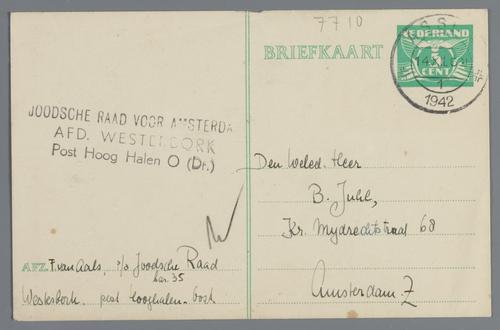 7710
NEDERLAND
BRIEFKAART
CENT
1
1942
JOODSCHE RAAD VOOR AMSTERDA
AFD. WESTERBORK
Post Hoog Halen O (Dr.)
Den Weled. Heer
B. Juhl,
Kr. Mydrechtstraat 68
Amsterdam. Z
AFZ. F. van Aals, p/a Joodsche Raad
bar. 35
Westerbork. post Hooghalen-Oost